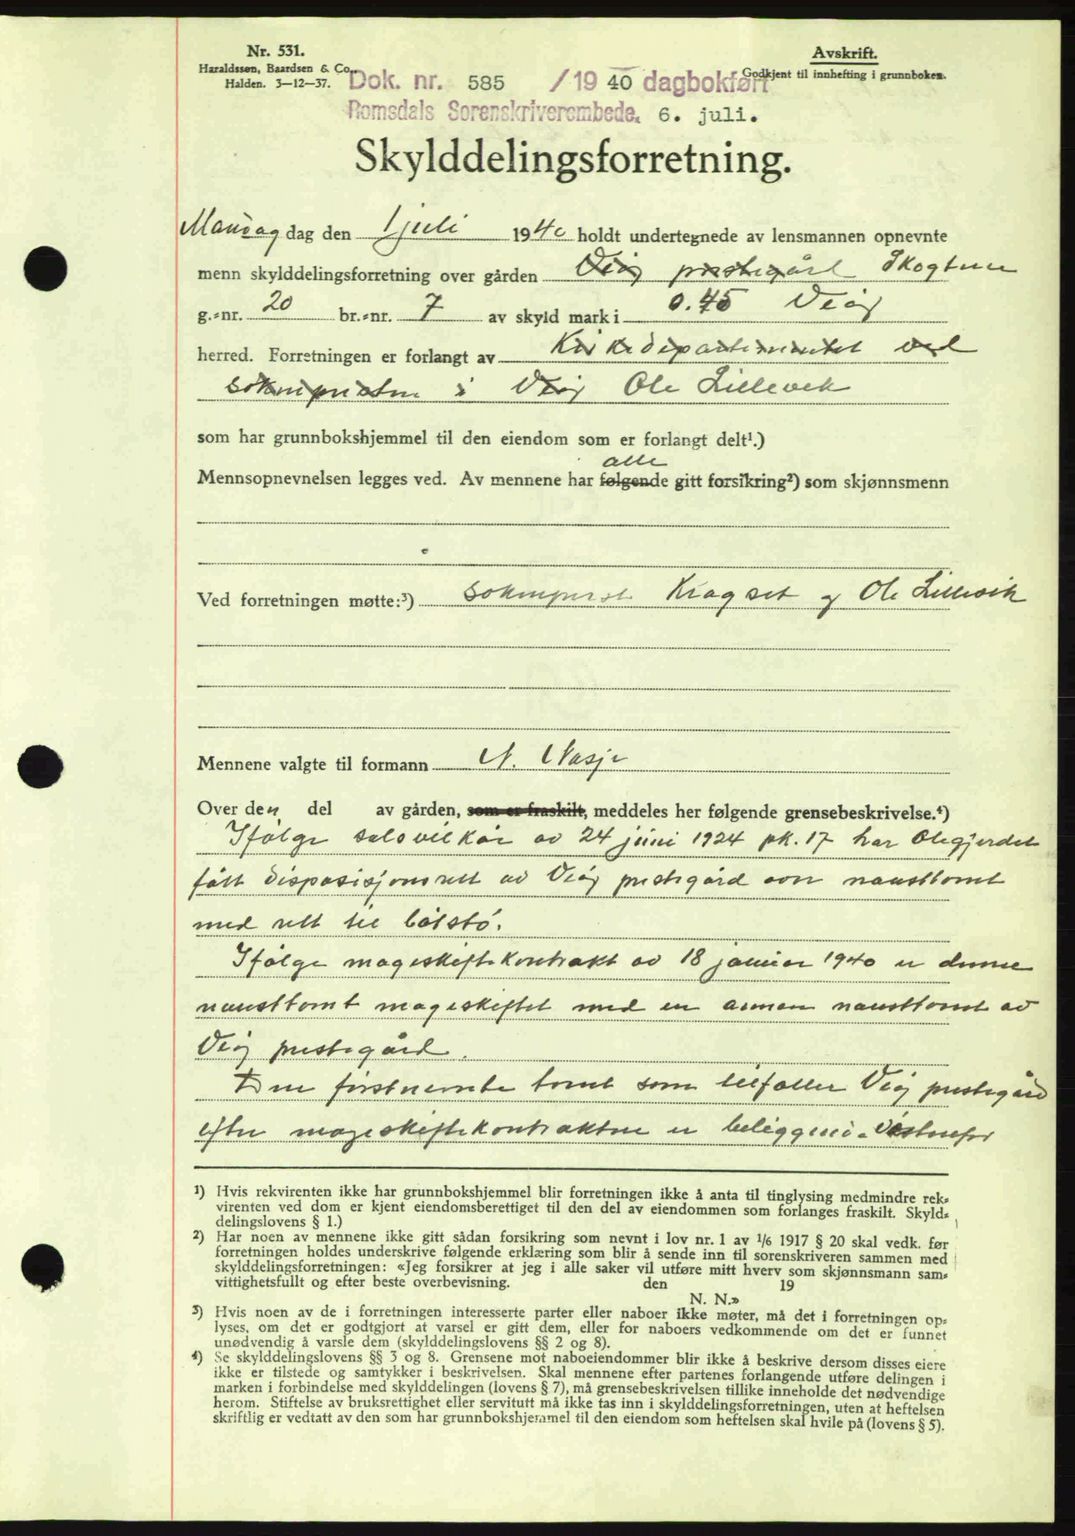 Nr. 531.
Haraldssen, Baardsen & Co.,
Halden. 3—12—37.
Avskrift.
Godkjent til innhefting i grunnboken.
Dok. nr. 585 /19 40 dagbokført
Romsdals Sorenskriverembede. 6. juli.
Skylddelingsforretning.
Mandag dag den 1 juli 1940 holdt undertegnede av lensmannen opnevnte
menn skylddelingsforretning over gården Veøy prestegård Skogtun
g.-nr. 20 br.-nr. 7 av skyld mark i 0.45 Veøy
herred. Forretningen er forlangt av Kirkedepartementet ved
soknepresten i Veøy Ole Lillevik
som har grunnbokshjemmel til den eiendom som er forlangt delt¹.)
alle
Mennsopnevnelsen legges ved. Av mennene har følgende gitt forsikring²) som skjønnsmenn
Ved forretningen møtte:³) sokneprest Kragset og Ole Lillevik
Mennene valgte til formann N. Nasje
Over den del av gården, som er fraskilt, meddeles her følgende grensebeskrivelse.⁴)
Ifølge salsvilkår av 24 juni 1924 pk. 17 har Olegjerdet
fått disposisjonsrett av Veøy prestegård over nausttomt
med rett til båtstø.
Ifølge mageskiftekontrakt av 18 januar 1940 er denne
nausttomt mageskiftet med en annen nausttomt av
Veøy prestegård.
Den førstnevnte tomt som tilfaller Veøy prestegård
efter mageskiftekontrakten er beliggende vestenfor
¹) Hvis rekvirenten ikke har grunnbokshjemmel blir forretningen ikke å anta til tinglysing medmindre rek-
virenten ved dom er kjent eiendomsberettiget til den del av eiendommen som forlanges fraskilt. Skyld-
delingslovens § 1.)
²) Har noen av mennene ikke gitt sådan forsikring som nevnt i lov nr. 1 av 1/6 1917 § 20 skal vedk. før
forretningen holdes underskrive følgende erklæring som blir å sende inn til sorenskriveren sammen med
skylddelingsforretningen: «Jeg forsikrer at jeg i alle saker vil utføre mitt hverv som skjønnsmann sam-
vittighetsfullt og efter beste overbevisning. den 19
N. N.»
³) Hvis noen av de i forretningen interesserte parter eller naboer ikke møter, må det i forretningen op-
lyses, om det er godtgjort at varsel er gitt dem, eller for naboers vedkommende om det er funnet
unødvendig å varsle dem (skylddelingslovens §§ 2 og 8).
⁴) Se skylddelingslovens §§ 3 og 8. Grensene mot naboeiendommer blir ikke å beskrive dersom disses eiere
ikke er tilstede og samtykker i beskrivelsen. Skal mennene efter partenes forlangende utføre delingen i
marken i forbindelse med skylddelingen (lovens § 7), må grensebeskrivelsen tillike inneholde det nødvendige
herom. Stiftelse av bruksrettighet eller servitutt må ikke tas inn i skylddelingsforretningen, uten at heftelsen
skriftlig er vedtatt av den som har grunnbokshjemmel til den eiendom som heftelsen skal hvile på (lovens § 5).